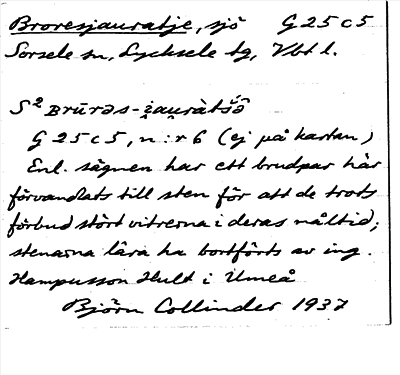 Broresjauratje, sjö G 25 c 5
Sorsele sn, Lycksele tg, Vbt l.
S² Brūrəs-
G 25 c 5, n :r 6 (ej på kartan)
Enl. sägnen har ett brudpar här
förvandlats till sten för att de trots
förbud stört vitrerna i deras måltid;
stenarna lära ha bortförts av ing.
Hampusson Hult i Umeå
Björn Collinder 1937